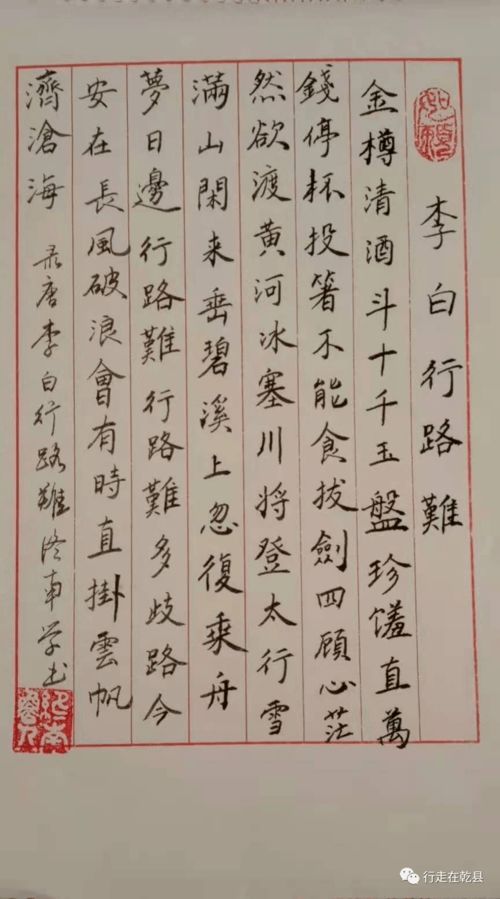 李白行路難
金樽清酒斗十千玉盤珍馐直萬
錢停杯投箸不能食拔劍四顧心茫
然欲渡黄河冰塞川将登太行雪
滿山閑来垂碧溪上忽復乘舟
夢日邊行路難行路難多歧路今
安在長風破浪會有時直掛雲帆
濟滄海 录唐李白行路難 学书
行走在乾县